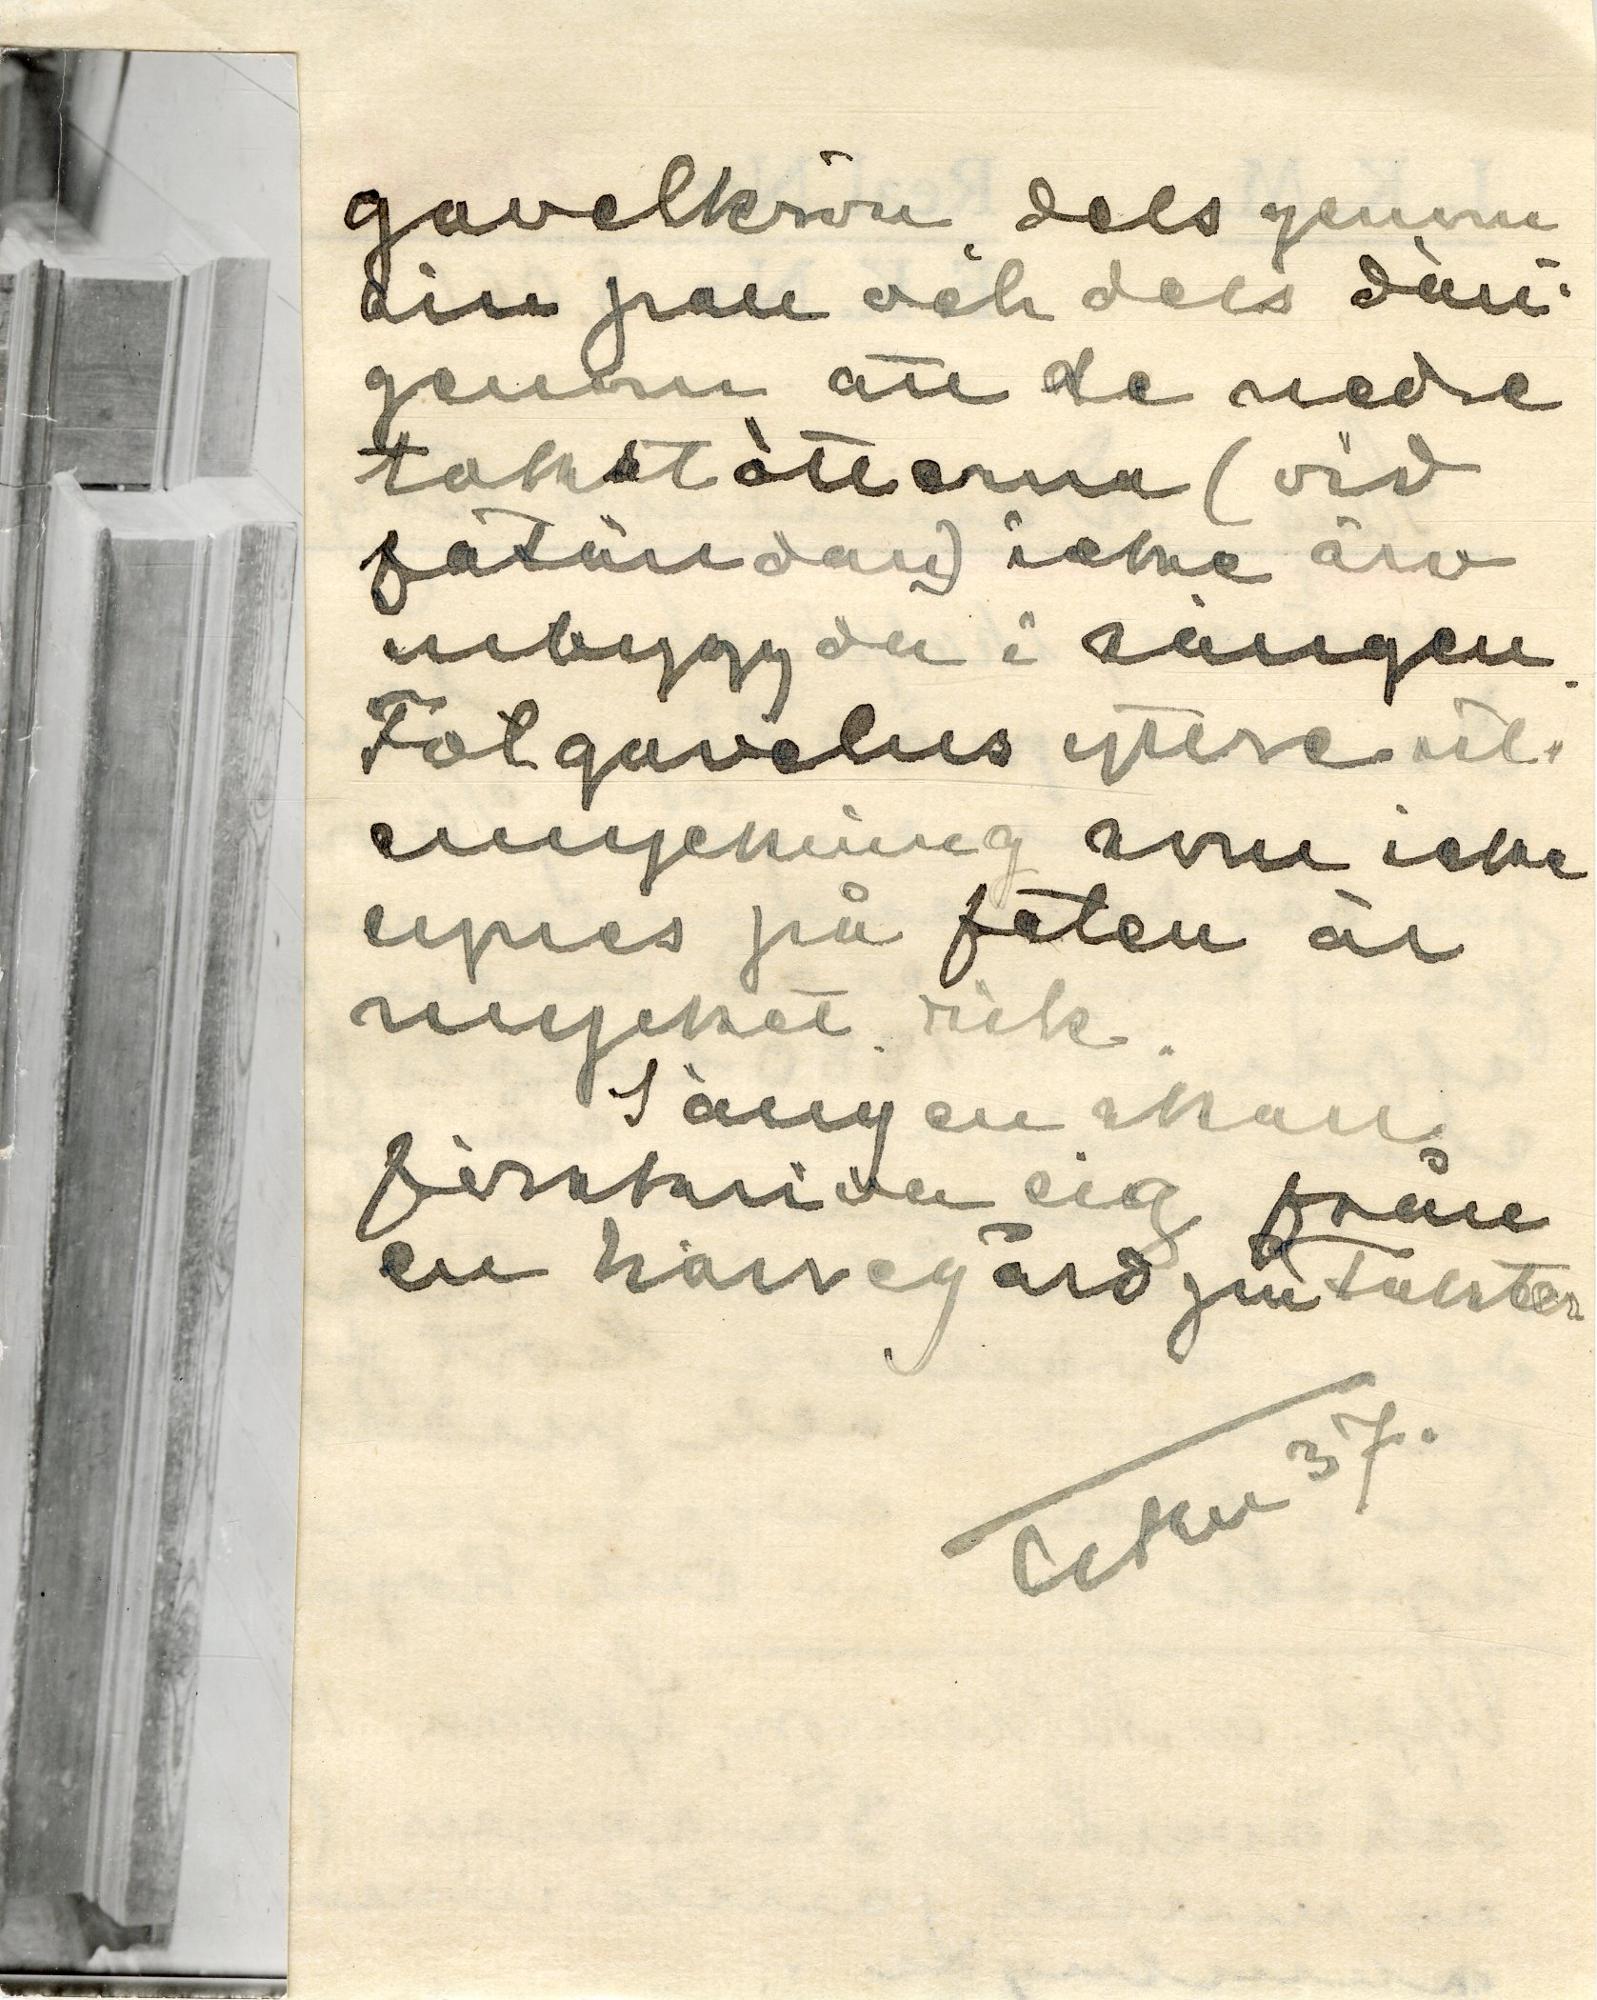 gavelkrön, dels genom
sin prau och dels däri-
genom att de nedre
takstöttorna (vid
fotändan) icke äro
inbyggda i sängen.
Fotgavelns yttre ut-
smyckning som icke
synes på foten är
mycket rik.
Sängen skall
förskriva sig från
en herregård på Tåkter
37.